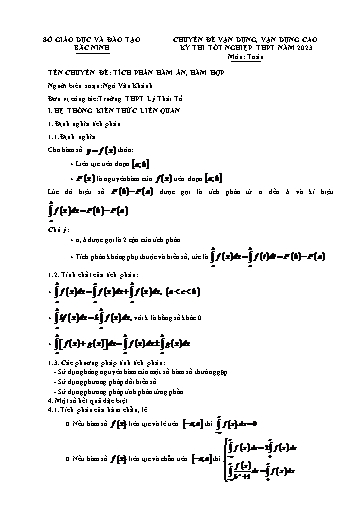 SỞ GIÁO DỤC VÀ ĐÀO TẠO
BẮC NINH
CHUYÊN ĐỀ VẬN DỤNG, VẬN DỤNG CAO
KỲ THI TỐT NGHIỆP THPT NĂM 2023
Môn: Toán
TÊN CHUYÊN ĐỀ: TÍCH PHÂN HÀM ẨN, HÀM HỢP
Người biên soạn: Ngô Văn Khánh
Đơn vị công tác: Trường THPT Lý Thái Tổ
I. HỆ THỐNG KIẾN THỨC LIÊN QUAN
1. Định nghĩa tích phân
1.1. Định nghĩa
Cho hàm số y = f(x) thỏa:
• Liên tục trên đoạn [a;b]
• F(x) là nguyên hàm của f(x) trên đoạn [a;b]
Lúc đó hiệu số F(b)−F(a) được gọi là tích phân từ a đến b và kí hiệu
∫_a^b f(x)dx = F(b)−F(a)
Chú ý:
• a, b được gọi là 2 cận của tích phân
• Tích phân không phụ thuộc và biến số, tức là ∫_a^b f(x)dx = ∫_a^b f(t)dt = F(b)−F(a)
1.2. Tính chất của tích phân:
• ∫_a^b f(x)dx = ∫_a^c f(x)dx + ∫_c^b f(x)dx, (a<c<b)
• ∫_a^b kf(x)dx = k∫_a^b f(x)dx, với k là hằng số khác 0
• ∫_a^b [f(x)±g(x)]dx = ∫_a^b f(x)dx ± ∫_a^b g(x)dx
1.3. Các phương pháp tính tích phân:
- Sử dụng bảng nguyên hàm của một số hàm số thường gặp
- Sử dụng phương pháp đổi biến số
- Sử dụng phương pháp tính phân từng phần
4. Một số kết quả đặc biệt
4.1. Tích phân của hàm chẵn, lẻ
Nếu hàm số f(x) liên tục và lẻ trên [−a;a] thì ∫_{−a}^a f(x)dx = 0
Nếu hàm số f(x) liên tục và chẵn trên [−a;a] thì { ∫_{−a}^a f(x)dx = 2∫_0^a f(x)dx
∫_{−a}^a f(x)/(b^x+1) dx = ∫_0^a f(x)dx